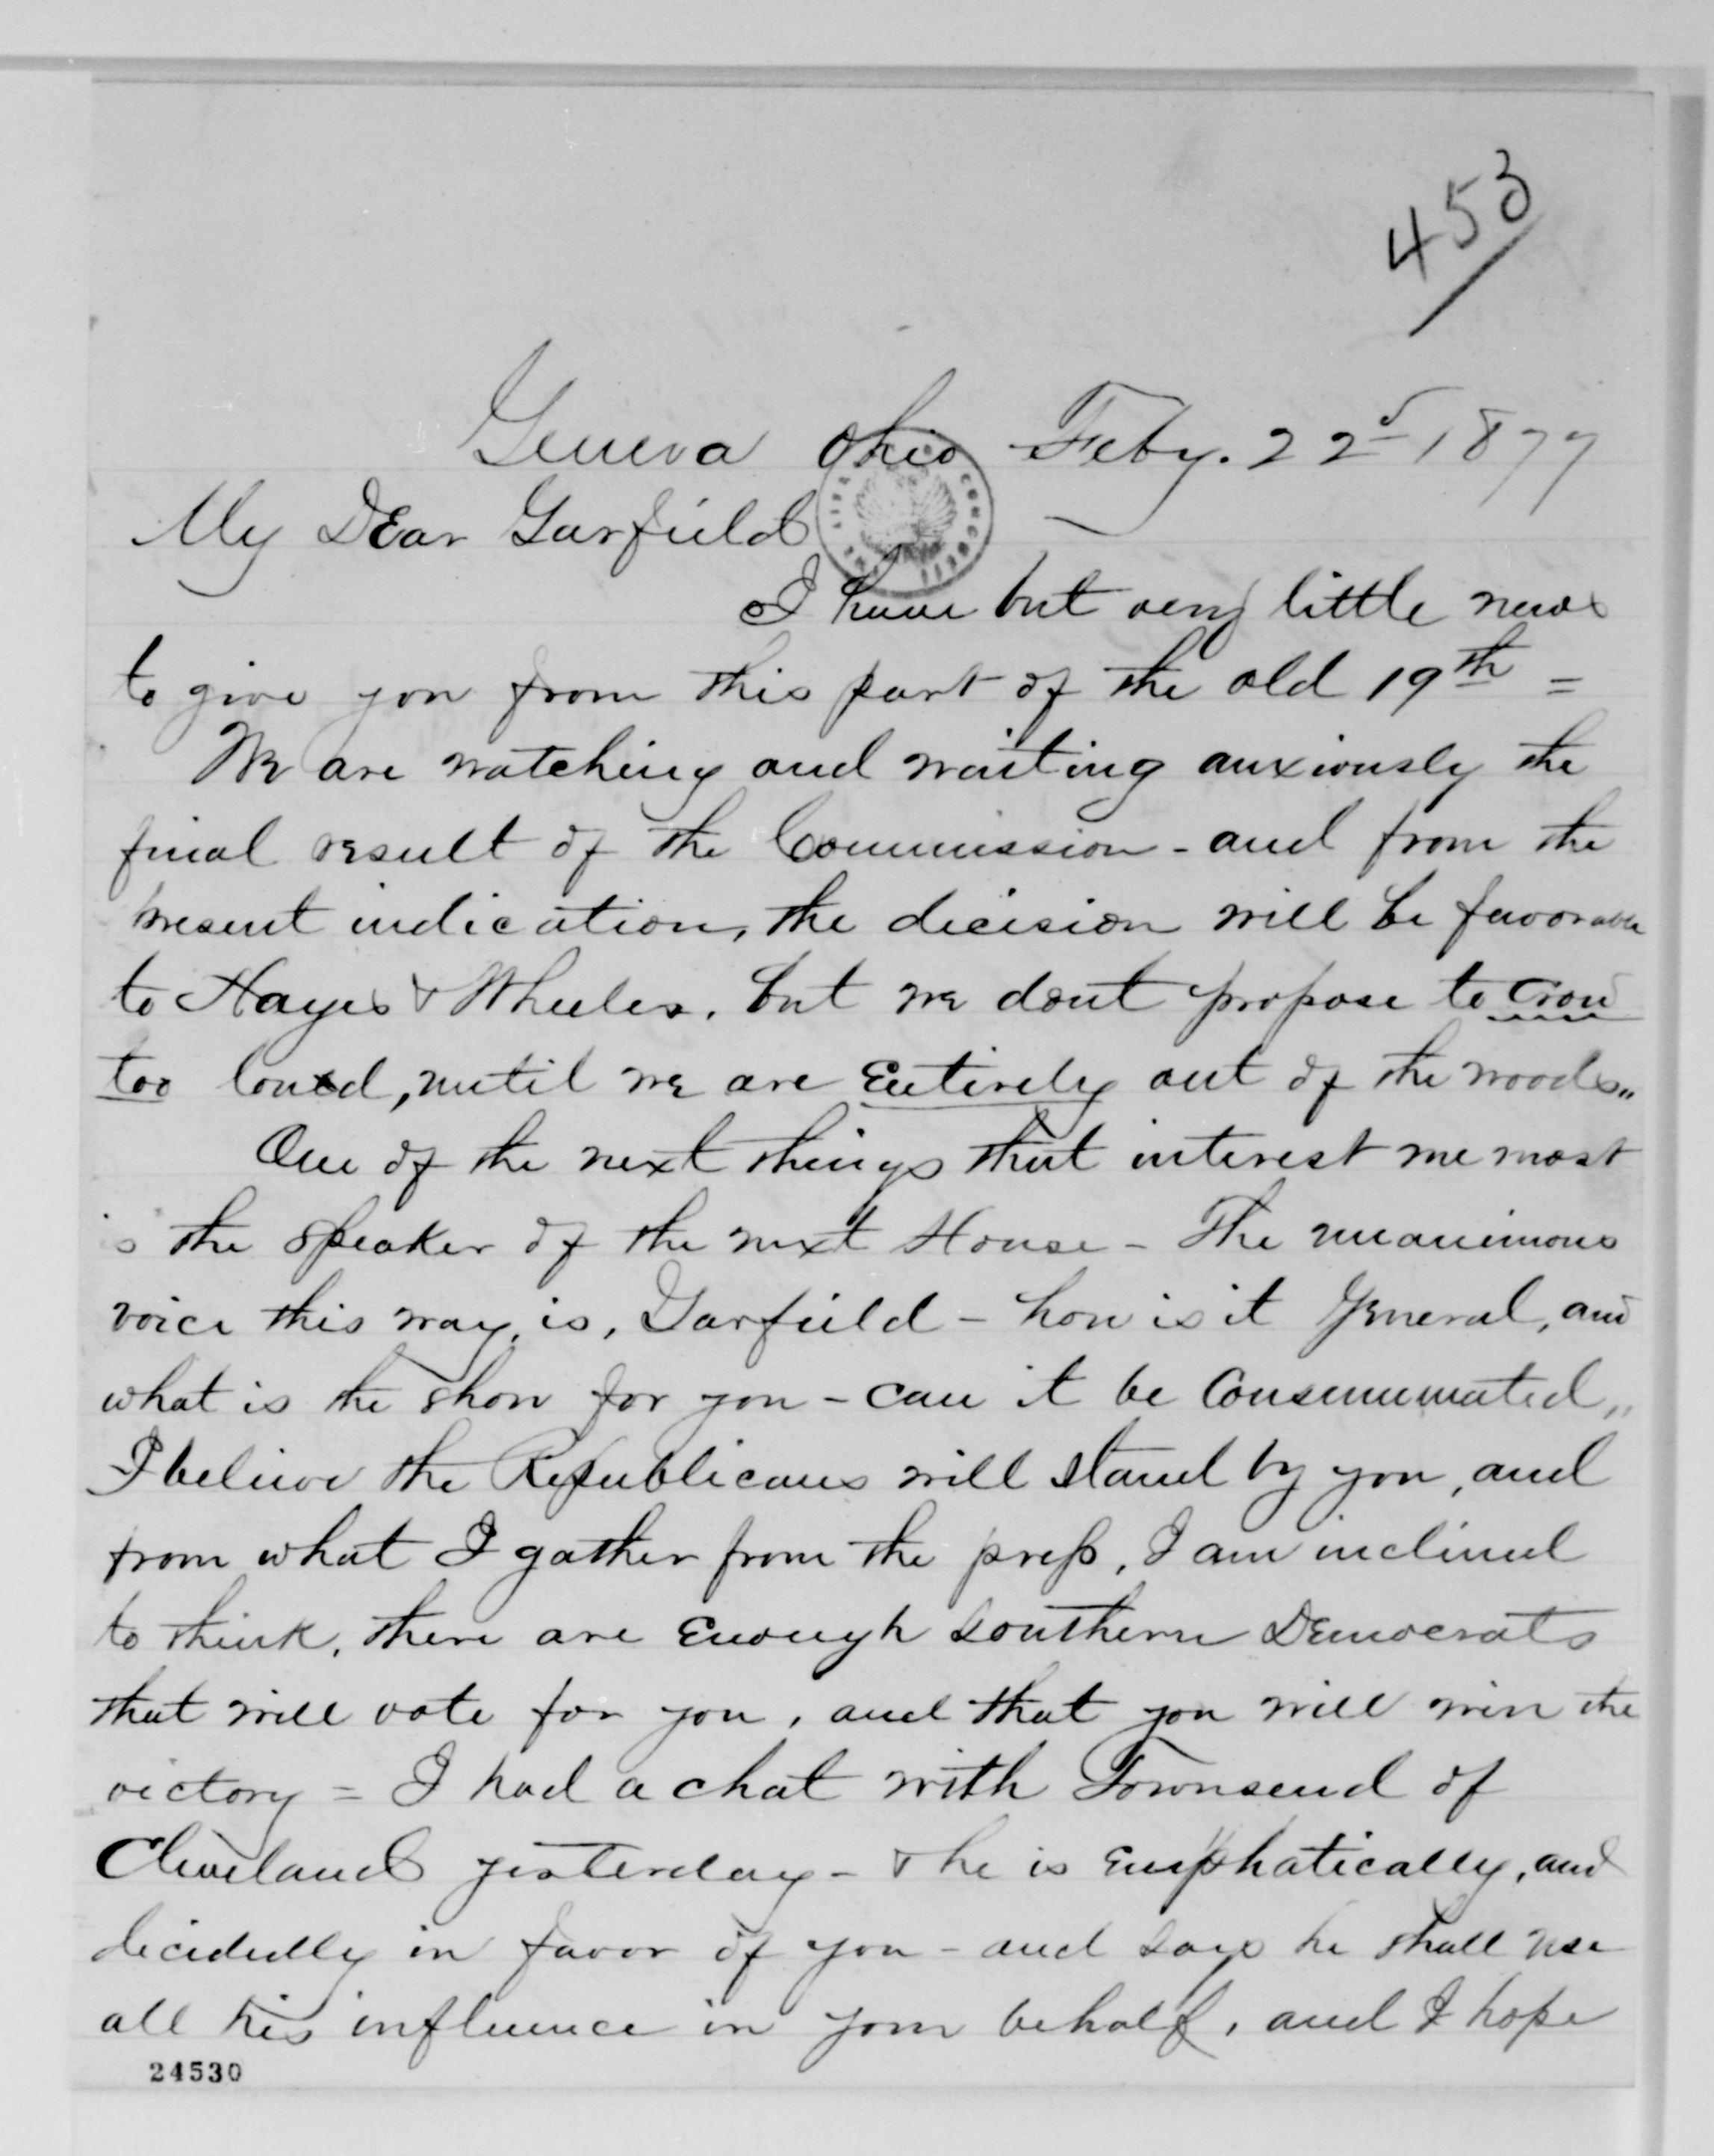 453
Geneva Ohio Feby. 22d 1877
My Dear Garfield
I have but very little news
to give you from this part of the old 19th =
We are watching and waiting anxiously the
final result of the Commission - and from the
present indication, the decision will be favorable
to Hayes & Wheeler. but we dont propose to Crow
too loud, until we are Entirely out of the woods„
One of the next things that interest me most
is the speaker of the next House - The unanimous
voice this way, is, Garfield - how is it General, and
what is the show for you - can it be Consummated„
I believe the Republicans will stand by you, and
from what I gather from the press, I am inclined
to think, there are Enough Southern Democrats
that will vote for you, and that you will win the
victory = I had a chat with Townsend of
Cleveland yesterday - & he is Emphatically, and
decidedly in favor of you - and says he shall use
all his influence in your behalf, and I hope
24530